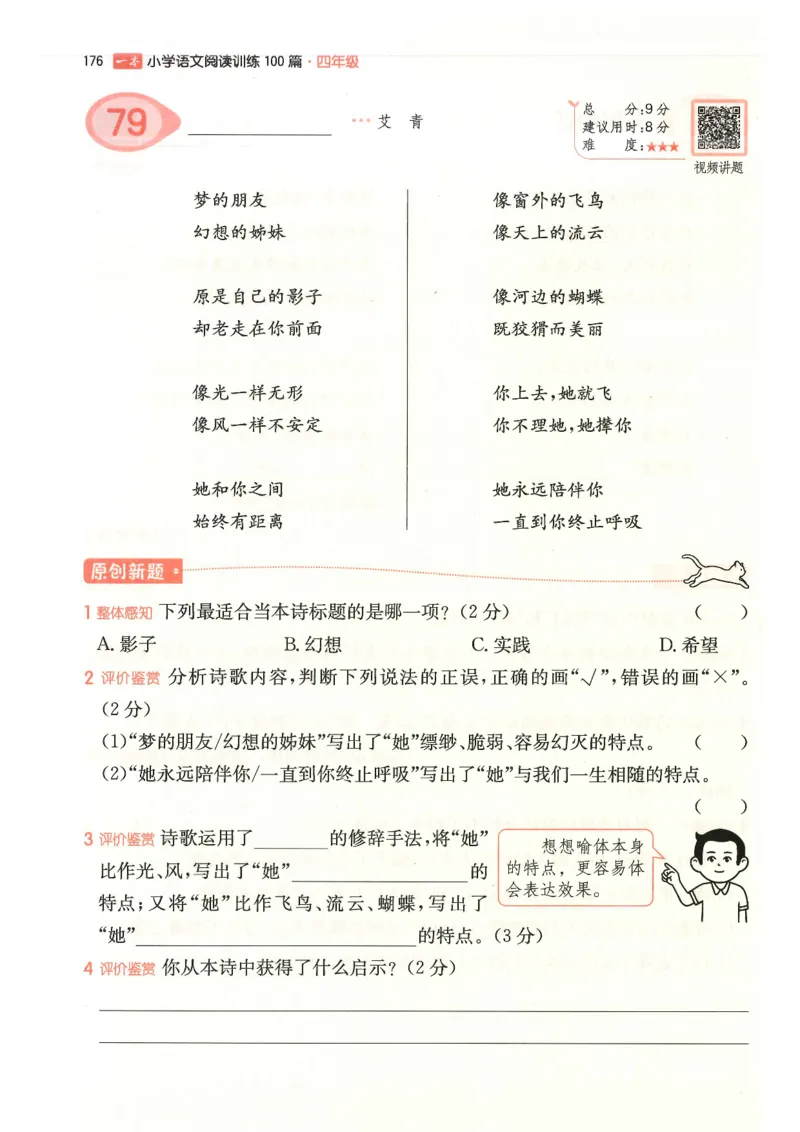 176 一本 小学语文阅读训练100篇·四年级
79
艾 青
总 分:9分
建议用时:8分
难 度:★★★
视频讲题
梦的朋友
幻想的姊妹
原是自己的影子
却老走在你前面
像光一样无形
像风一样不安定
她和你之间
始终有距离
像窗外的飞鸟
像天上的流云
像河边的蝴蝶
既狡猾而美丽
你上去,她就飞
你不理她,她撵你
她永远陪伴你
一直到你终止呼吸
原创新题
1 整体感知 下列最适合当本诗标题的是哪一项?(2分) ( )
A.影子 B.幻想 C.实践 D.希望
2 评价鉴赏 分析诗歌内容,判断下列说法的正误,正确的画“√”,错误的画“×”。
(2分)
(1)“梦的朋友/幻想的姊妹”写出了“她”缥缈、脆弱、容易幻灭的特点。 ( )
(2)“她永远陪伴你/一直到你终止呼吸”写出了“她”与我们一生相随的特点。
( )
3 评价鉴赏 诗歌运用了________的修辞手法,将“她”
比作光、风,写出了“她”____________________的
特点;又将“她”比作飞鸟、流云、蝴蝶,写出了
“她”______________________________的特点。(3分)
想想喻体本身
的特点,更容易体
会表达效果。
4 评价鉴赏 你从本诗中获得了什么启示?(2分)